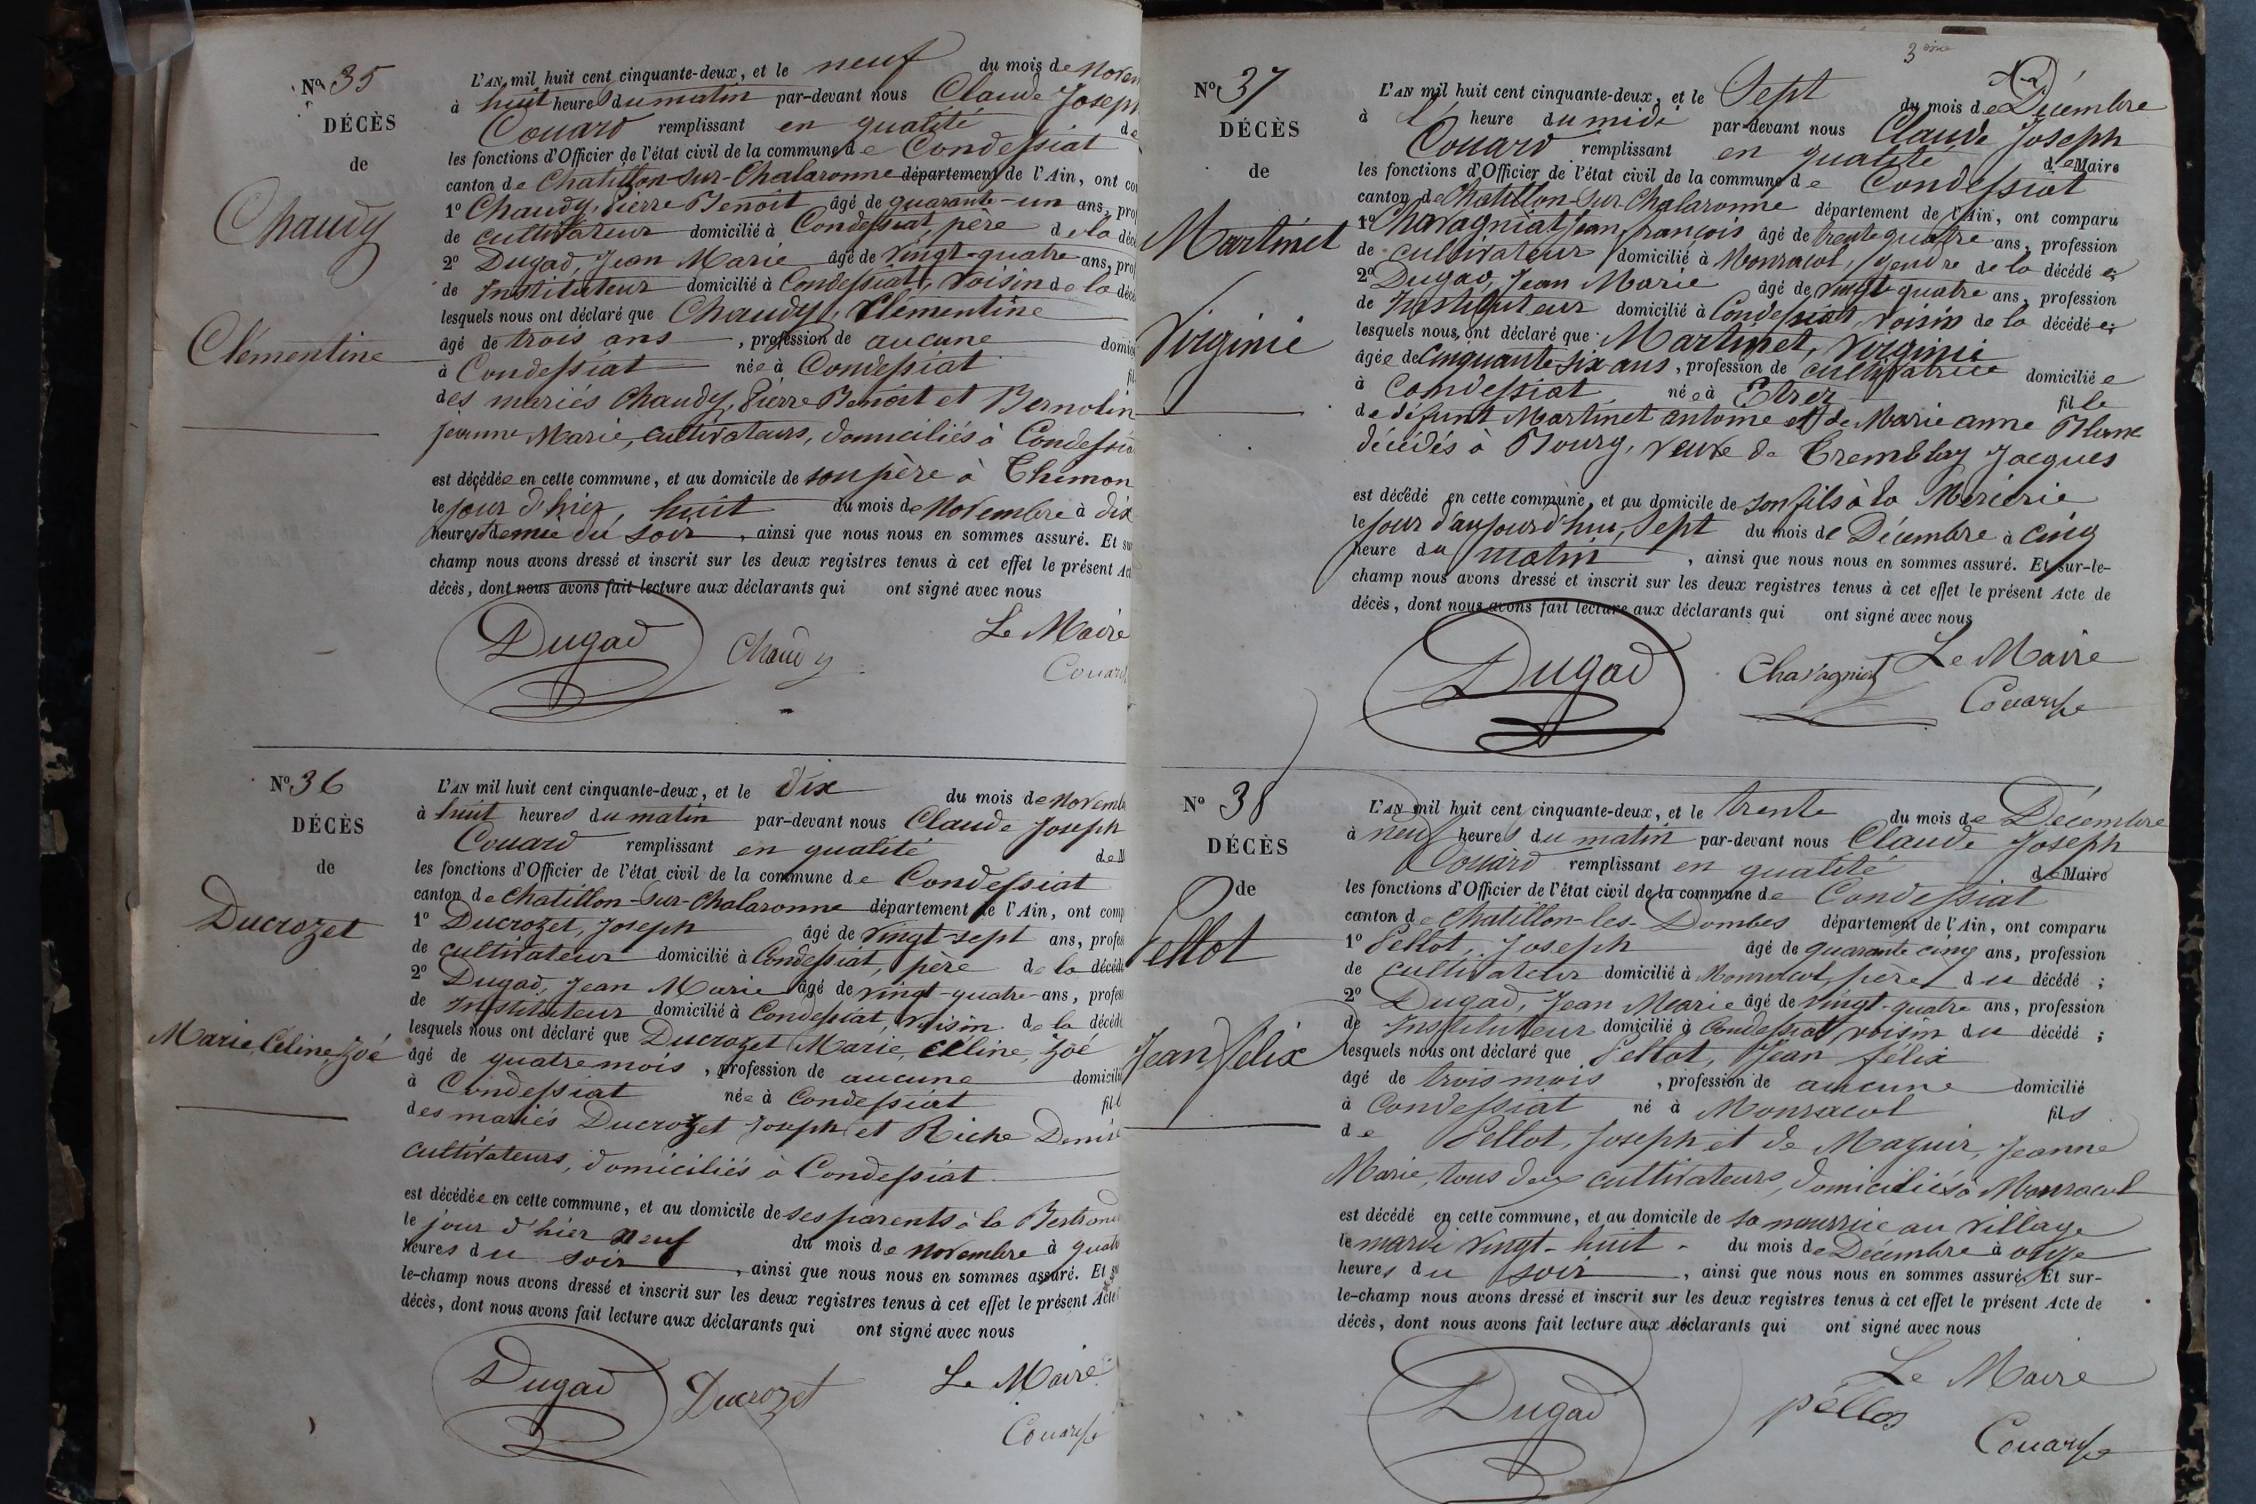 N° 35
DÉCÈS
de
Chaudy
Clémentine
L'AN mil huit cent cinquante-deux, et le neuf du mois de Novem
à huit heures du matin par-devant nous Claude Joseph
Couard remplissant en qualité de
les fonctions d'Officier de l'état civil de la commune de Condessiat
canton de Chatillon-sur-Chalaronne département de l'Ain, ont co
1° Chaudy, Pierre Benoit âgé de quarante-un ans, pro
de cultivateur domicilié à Condessiat, père de la déc
2° Dugad, Jean Marie âgé de vingt-quatre ans, prof
de Instituteur domicilié à Condessiat, voisin de la déc
lesquels nous ont déclaré que Chaudy, Clémentine
âgé de trois ans, profession de aucune domici
à Condessiat née à Condessiat fil
des mariés Chaudy, Pierre Benoit et Bernolin
jeanne Marie, cultivateurs, domiciliés à Condessia
est décédée en cette commune, et au domicile de son père à Thimon
le jour d'hier, huit du mois de Novembre à dix
heures demie du soir, ainsi que nous nous en sommes assuré. Et sur
champ nous avons dressé et inscrit sur les deux registres tenus à cet effet le présent Act
décès, dont nous avons fait lecture aux déclarants qui ont signé avec nous
Dugad Chaudy Le Maire
Couard
N° 36
DÉCÈS
de
Ducrozet
Marie, Céline, Zoé
L'AN mil huit cent cinquante-deux, et le dix du mois de Novemb
à huit heures du matin par-devant nous Claude Joseph
Couard remplissant en qualité de M
les fonctions d'Officier de l'état civil de la commune de Condessiat
canton de Chatillon-sur-Chalaronne département de l'Ain, ont comp
1° Ducrozet, Joseph âgé de vingt-sept ans, profes
de cultivateur domicilié à Condessiat, père de la décédé
2° Dugad, Jean Marie âgé de vingt-quatre ans, profes
de Instituteur domicilié à Condessiat, voisin de la décédé
lesquels nous ont déclaré que Ducrozet Marie, Céline, Zoé
âgé de quatre mois, profession de aucune domicili
à Condessiat née à Condessiat fill
des mariés Ducrozet Joseph et Riche Denise
cultivateurs, domiciliés à Condessiat
est décédée en cette commune, et au domicile de ses parents à la Bertrand
le jour d'hier neuf du mois de Novembre à quat
heures du soir, ainsi que nous nous en sommes assuré. Et su
le-champ nous avons dressé et inscrit sur les deux registres tenus à cet effet le présent Acte
décès, dont nous avons fait lecture aux déclarants qui ont signé avec nous
Dugad Ducrozet Le Maire
Couard
3ème
N° 37
DÉCÈS
de
Martinet
Virginie
L'AN mil huit cent cinquante-deux, et le Sept du mois de Décembre
à l' heure du midi par-devant nous Claude Joseph
Couard remplissant en qualité de Maire
les fonctions d'Officier de l'état civil de la commune de Condessiat
canton de Chatillon-sur-Chalaronne département de l'Ain, ont comparu
1° Chavagniat Jean, françois âgé de trente quatre ans, profession
de cultivateur domicilié à Monracol, gendre de la décédée;
2° Dugad, Jean Marie âgé de vingt-quatre ans, profession
de Instituteur domicilié à Condessiat, voisin de la décédée;
lesquels nous ont déclaré que Martinet, Virginie
âgée de cinquante-six ans, profession de cultivatrice domiciliée
à Condessiat née à Etrez fille
de défunt Martinet antoine et de Marie anne Blanc
décédés à Bourg, veuve de Tremblay Jacques
est décédé en cette commune, et au domicile de son fils à la Mererie
le jour d'aujourd'hui, Sept du mois de Décembre à cinq
heure du matin, ainsi que nous nous en sommes assuré. Et sur-le-
champ nous avons dressé et inscrit sur les deux registres tenus à cet effet le présent Acte de
décès, dont nous avons fait lecture aux déclarants qui ont signé avec nous
Dugad Chavagniat Le Maire
Couard
N° 38
DÉCÈS
de
Pellot
Jean félix
L'AN mil huit cent cinquante-deux, et le trente du mois de Décembre
à neuf heures du matin par-devant nous Claude Joseph
Couard remplissant en qualité de Maire
les fonctions d'Officier de l'état civil de la commune de Condessiat
canton de Chatillon-les-Dombes département de l'Ain, ont comparu
1° Pellot, Joseph âgé de quarante cinq ans, profession
de cultivateur domicilié à Monracol, père du décédé;
2° Dugad, Jean Marie âgé de vingt-quatre ans, profession
de Instituteur domicilié à Condessiat, voisin du décédé;
lesquels nous ont déclaré que Pellot, Jean félix
âgé de trois mois, profession de aucune domicilié
à Condessiat né à Monracol fils
de Pellot, Joseph et de Maguir, Jeanne
Marie, tous deux cultivateurs, domiciliés à Monracol
est décédé en cette commune, et au domicile de sa nourrice au village
le mardi vingt-huit du mois de Décembre à onze
heures du soir, ainsi que nous nous en sommes assuré. Et sur-
le-champ nous avons dressé et inscrit sur les deux registres tenus à cet effet le présent Acte de
décès, dont nous avons fait lecture aux déclarants qui ont signé avec nous
Dugad Le Maire
péllot Couard